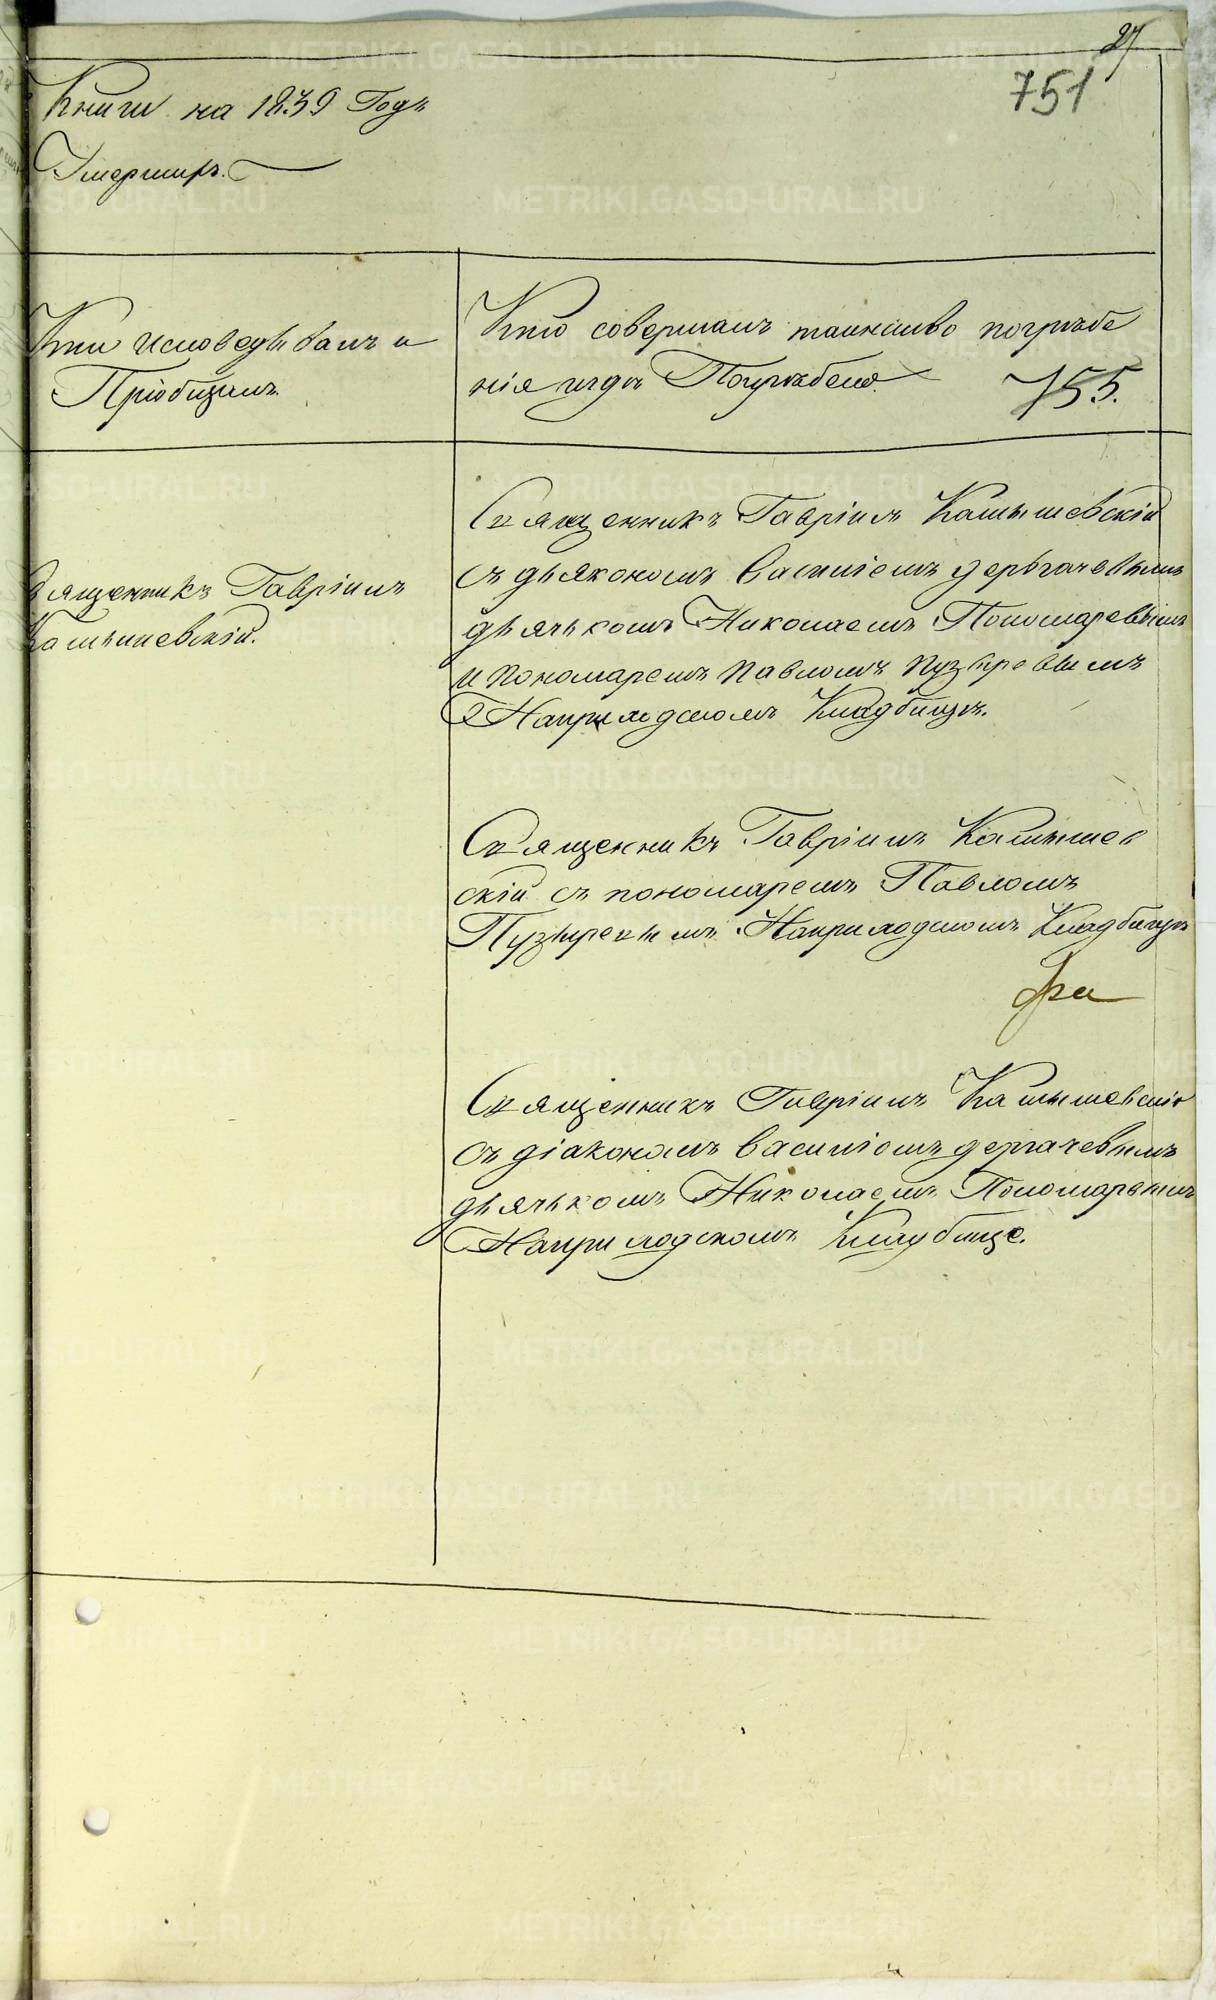 27
751
Книги на 1839 Годъ
Умершихъ.
Кто исповедывалъ и
Пріобщалъ.
Кто совершалъ таинство погрѣбе
нія и гдѣ Погребено.
755.
Священникъ Гавріилъ
Камышевскій.
Священникъ Гавріилъ Камышевскій
съ дьякономъ Василіемъ дергачевымъ
дьячькомъ Николаемъ Пономаревымъ
и пономаремъ Павломъ Пузыревымъ
На приходскомъ Кладбищѣ.
Священникъ Гавріилъ Камышев
скій съ пономаремъ Павломъ
Пузыревымъ На приходскомъ Кладбищѣ
Священникъ Гавріилъ Камышевскій
съ діакономъ Василіомъ дергачевымъ
дьячькомъ Николаемъ Пономаревымъ
На приходскомъ Кладбище.
METRIKI.GASO-URAL.RU